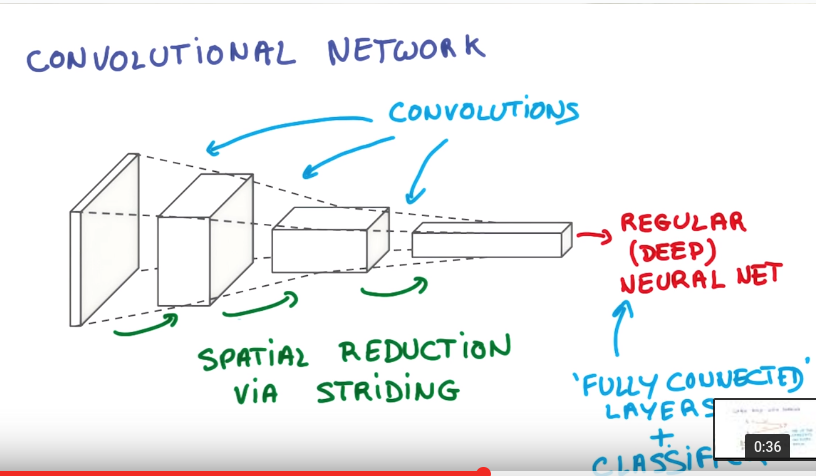 CONVOLUTIONAL NETWORK
CONVOLUTIONS
REGULAR
(DEEP)
NEURAL NET
SPATIAL REDUCTION
VIA STRIDING
'FULLY CONNECTED'
LAYERS
+
0:36